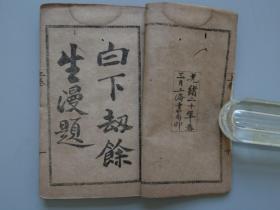 光緒二十年春
三月上海書局印
白下刼餘
生漫題